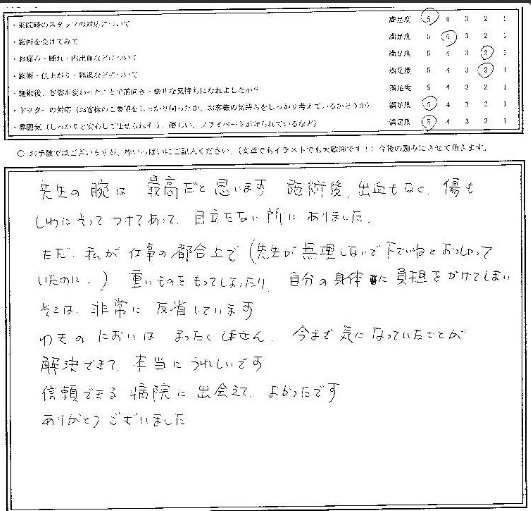 ・来院時のスタッフの対応について 満足度 5 4 3 2 1
・施術を受けてみて 満足度 5 4 3 2 1
・お痛み・腫れ・内出血などについて 満足度 5 4 3 2 1
・傷・仕上がり・経過などについて 満足度 5 4 3 2 1
・施術後、お客が変わったことで前向き・幸せな気持ちになれましたか 満足度 5 4 3 2 1
・ドクターの対応(お客様のご要望をしっかり伺ったか、お客様の気持ちをしっかり考えているかどうか) 満足度 5 4 3 2 1
・雰囲気(しっかりと安心して任せられそう、優しい、プライベートが守られているなど) 満足度 5 4 3 2 1
○お手数ではございますが、枠いっぱいにご記入ください。(文章でもイラストでも大歓迎です!)今後の励みにさせて頂きます。
先生の腕は 最高だと思います 施術後、出血もなく、傷も
しわにそってつけてあって、目立たない所にありました。
ただ、私が仕事の都合上で(先生が無理しないで下さいねとおっしゃって
いたのに。)重いものをもってしまったり、自分の身体に負担をかけてしまい
そこは、非常に反省しています
わきのにおいは まったくしません。今まで気になっていたことが
解決できて、本当にうれしいです
信頼できる病院に出会えて、よかったです
ありがとうございました